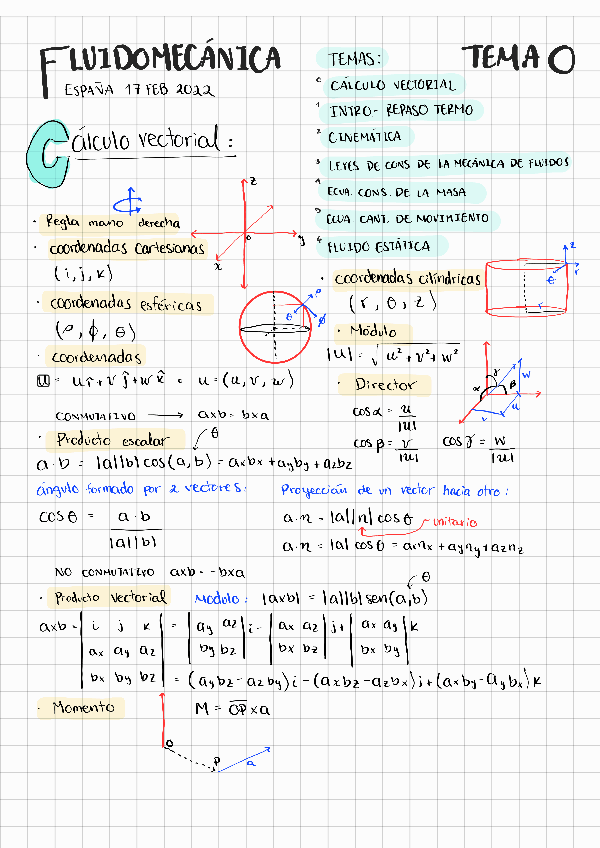 FLUIDOMECÁNICA
ESPAÑA 17 FEB 2022
TEMAS:
TEMA 0
0 CÁLCULO VECTORIAL
1 INTRO- REPASO TERMO
2 CINEMÁTICA
3 LEYES DE CONS DE LA MECÁNICA DE FLUIDOS
4 ECUA. CONS. DE LA MASA
5 ECUA CANT. DE MOVIMIENTO
6 FLUIDO ESTÁTICA
Cálculo vectorial:
· Regla mano derecha
· coordenadas cartesianas
(i, j, k)
z
y
x
o
· coordenadas esféricas
(ρ, ϕ, θ)
ρ
θ
ϕ
· coordenadas cilíndricas
(r, θ, z)
z
θ
r
r
· coordenadas
u = uî + vĵ + wk̂ = u = (u, v, w)
· Módulo
|u| = √u² + v² + w²
· Director
cos α = u/|u|
cos β = v/|u| cos γ = w/|u|
α
γ
β
w
v
u
CONMUTATIVO → axb = bxa
· Producto escalar θ
a·b = |a||b|cos(a,b) = axbx + ayby + azbz
ángulo formado por 2 vectores:
cos θ = a·b/|a||b|
Proyección de un vector hacia otro:
a·n = |a||n|cos θ unitario
a·n = |a| cos θ = axnx + ayny + aznz
NO CONMUTATIVO axb = -bxa
· Producto vectorial Modulo: |axb| = |a||b|sen(a,b) θ
axb = | i j k | = | ay az | i - | ax az | j + | ax ay | k
| ax ay az | | by bz | | bx bz | | bx by |
| bx by bz | = (aybz - azby)i - (axbz - azbx)j + (axby - aybx)k
· Momento M = OP × a
O
P
a